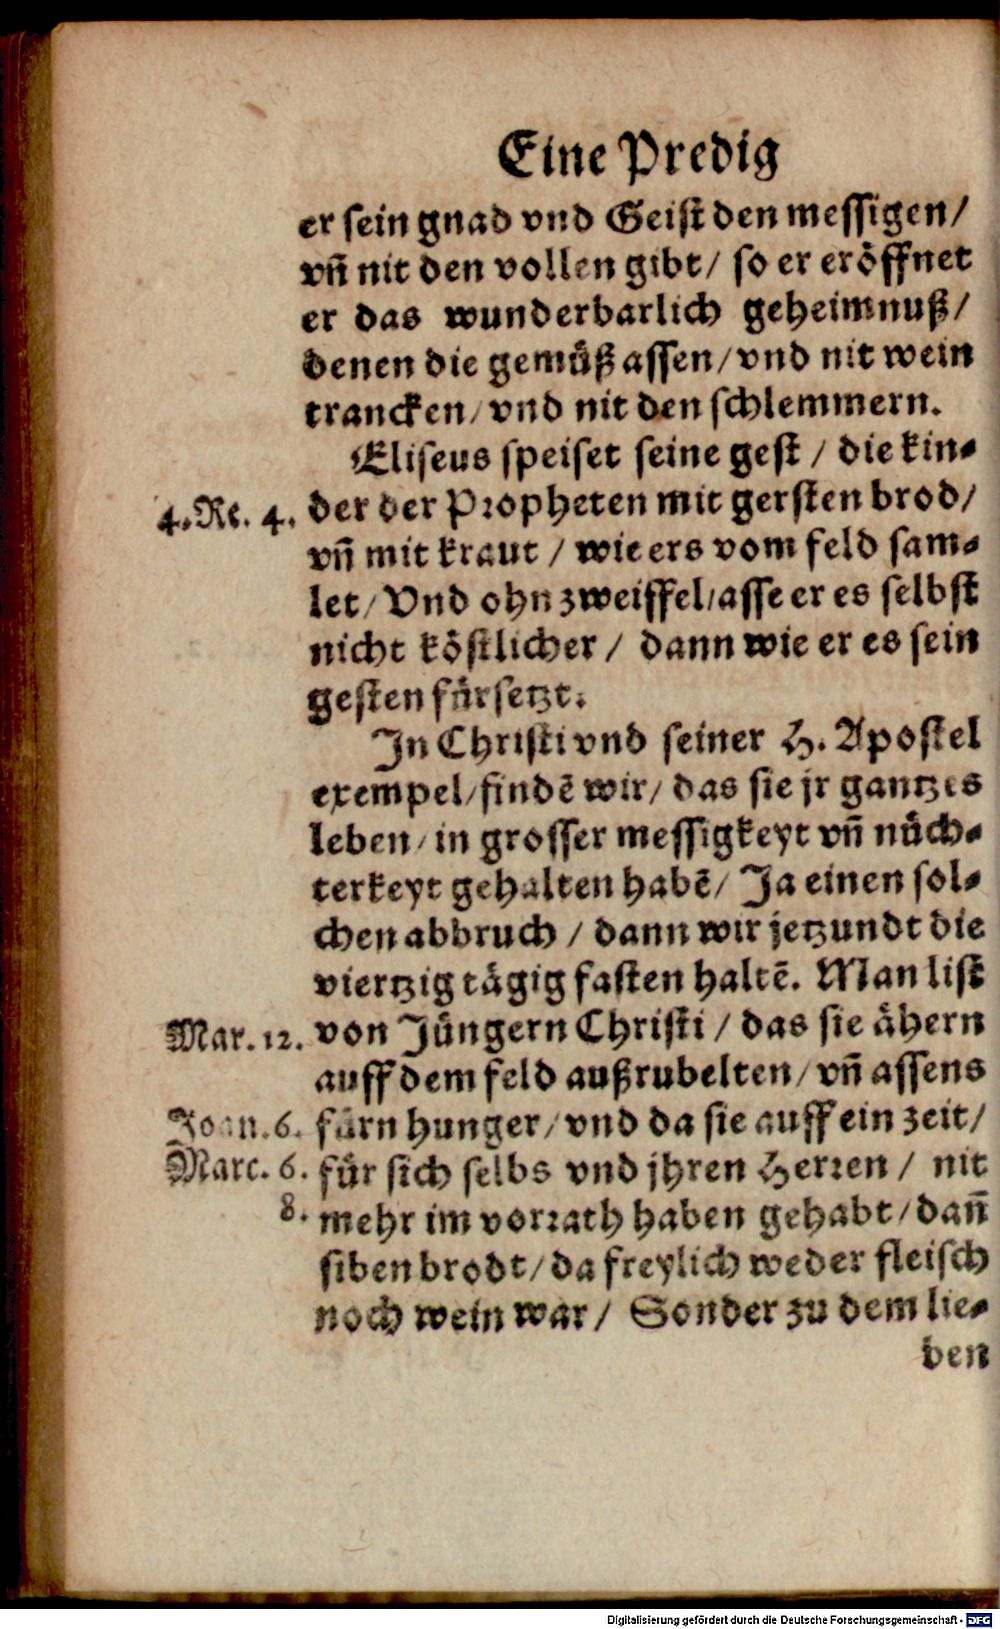 Eine Predig
er sein gnad vnd Geist den messigen/
vñ nit den vollen gibt/ so er eröffnet
er das wunderbarlich geheimnuß/
denen die gemüß assen/ vnd nit wein
trancken/ vnd nit den schlemmern.
Eliseus speiset seine gest / die kin-
4. Re. 4. der der Propheten mit gersten brod/
vñ mit kraut / wie ers vom feld sam-
let/ Vnd ohn zweiffel/ asse er es selbst
nicht köstlicher / dann wie er es sein
gesten fürsetzt.
In Christi vnd seiner H. Apostel
exempel/ findē wir/ das sie jr gantzes
leben/ in grosser messigkeyt vñ nüch-
terkeyt gehalten habē/ Ja einen sol-
chen abbruch / dann wir jetzundt die
viertzig tägig fasten haltē. Man list
Mar. 12. von Jüngern Christi / das sie ähern
auff dem feld außrubelten/ vñ assens
Joan. 6. fürn hunger/ vnd da sie auff ein zeit/
Marc. 6. für sich selbs vnd jhren Herren / nit
8. mehr im vorrath haben gehabt/ dañ
siben brodt/ da freylich weder fleisch
noch wein war/ Sonder zu dem lie-
ben
Digitalisierung gefördert durch die Deutsche Forschungsgemeinschaft - DFG